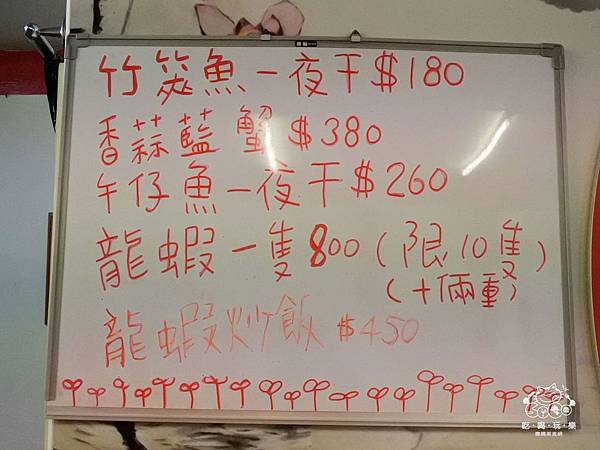 竹筴魚一夜干$180
香蒜藍蟹$380
午仔魚一夜干$260
龍蝦一隻800(限10隻)
(十兩重)
龍蝦炒飯$450
吃·喝·玩·樂